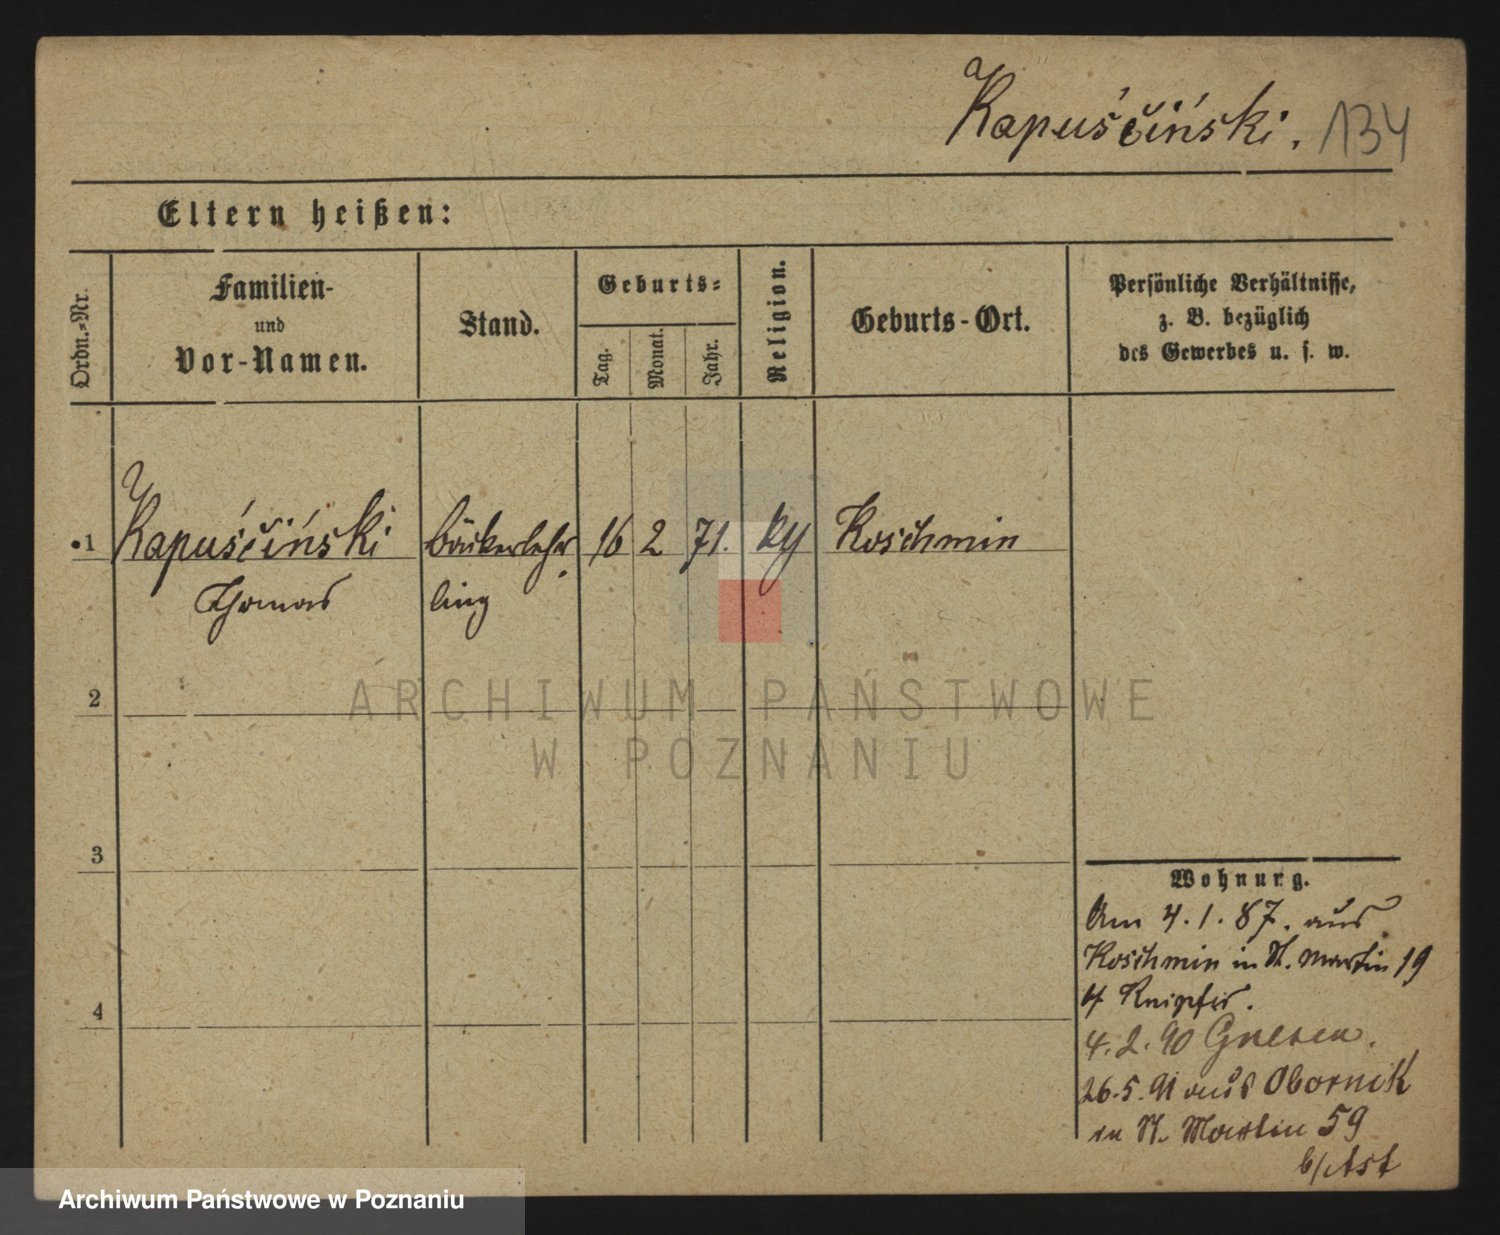 Kapuściński. 134
Eltern heißen:
Ordn.=Nr.
Familien-
und
Vor-Namen.
Stand.
Geburts=
Tag.
Monat.
Jahr.
Religion.
Geburts-Ort.
Persönliche Verhältnisse,
z. B. bezüglich
des Gewerbes u. s. w.
1 Kapuściński Bäckerlehr 16 2 71. Koschmin
Thomas ling
2
3
4
ARCHIWUM PAŃSTWOWE
W POZNANIU
Wohnung.
Am 4.1.87. aus
Koschmin in St. Martin 19
4.2.90 Gnesen.
26.5.91 aus Obornik
in St. Martin 59
b/Ast
Archiwum Państwowe w Poznaniu